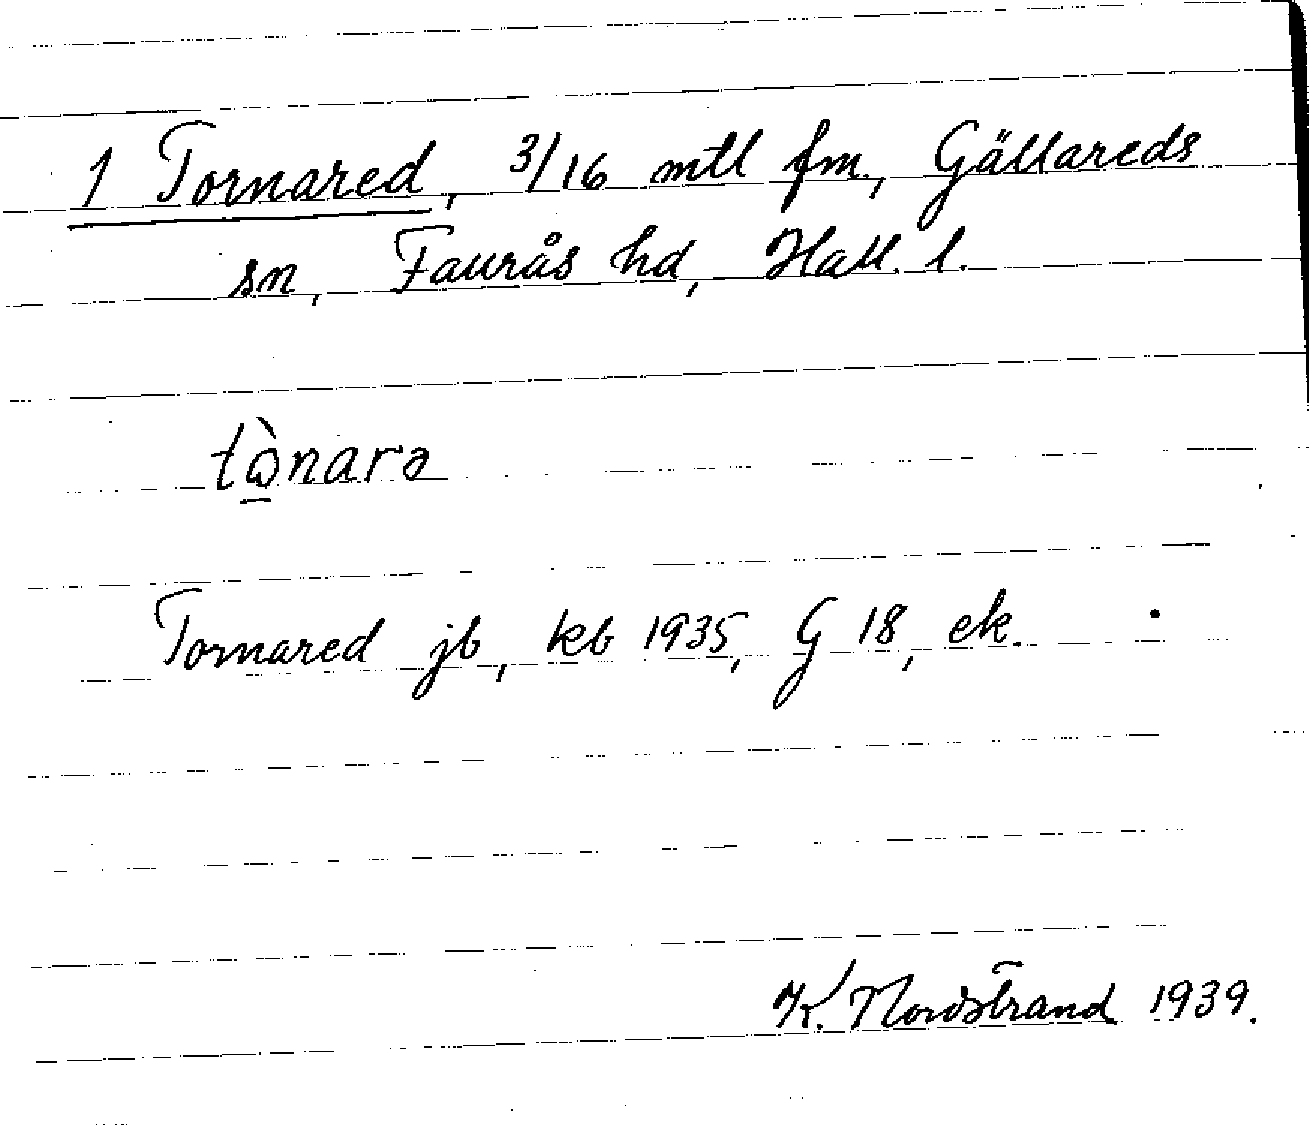 1 Tornared, 3/16 mtl fm, Gällareds
sn, Faurås hd, Hall. l.
tὼ̱narə
Tornared jb, kb 1935, G 18, ek.
K. Nordstrand 1939.